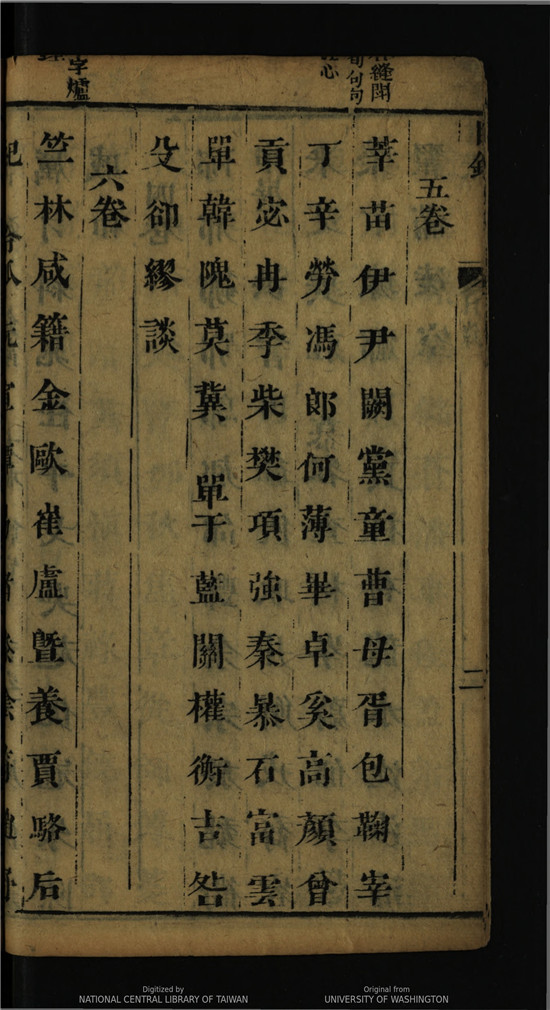 目錄
二
五卷
莘苗伊尹闕黨童曹母胥包鞠宰
丁辛勞馮郎何薄畢卓奚高顏曾
貢宓冉季柴樊項強秦暴石富雲
單韓隗莫冀單于藍關權衡吉昝
殳卻繆談
六卷
竺林咸籍金歐崔盧暨養賈駱后
字爐
Digitized by
NATIONAL CENTRAL LIBRARY OF TAIWAN
Original from
UNIVERSITY OF WASHINGTON